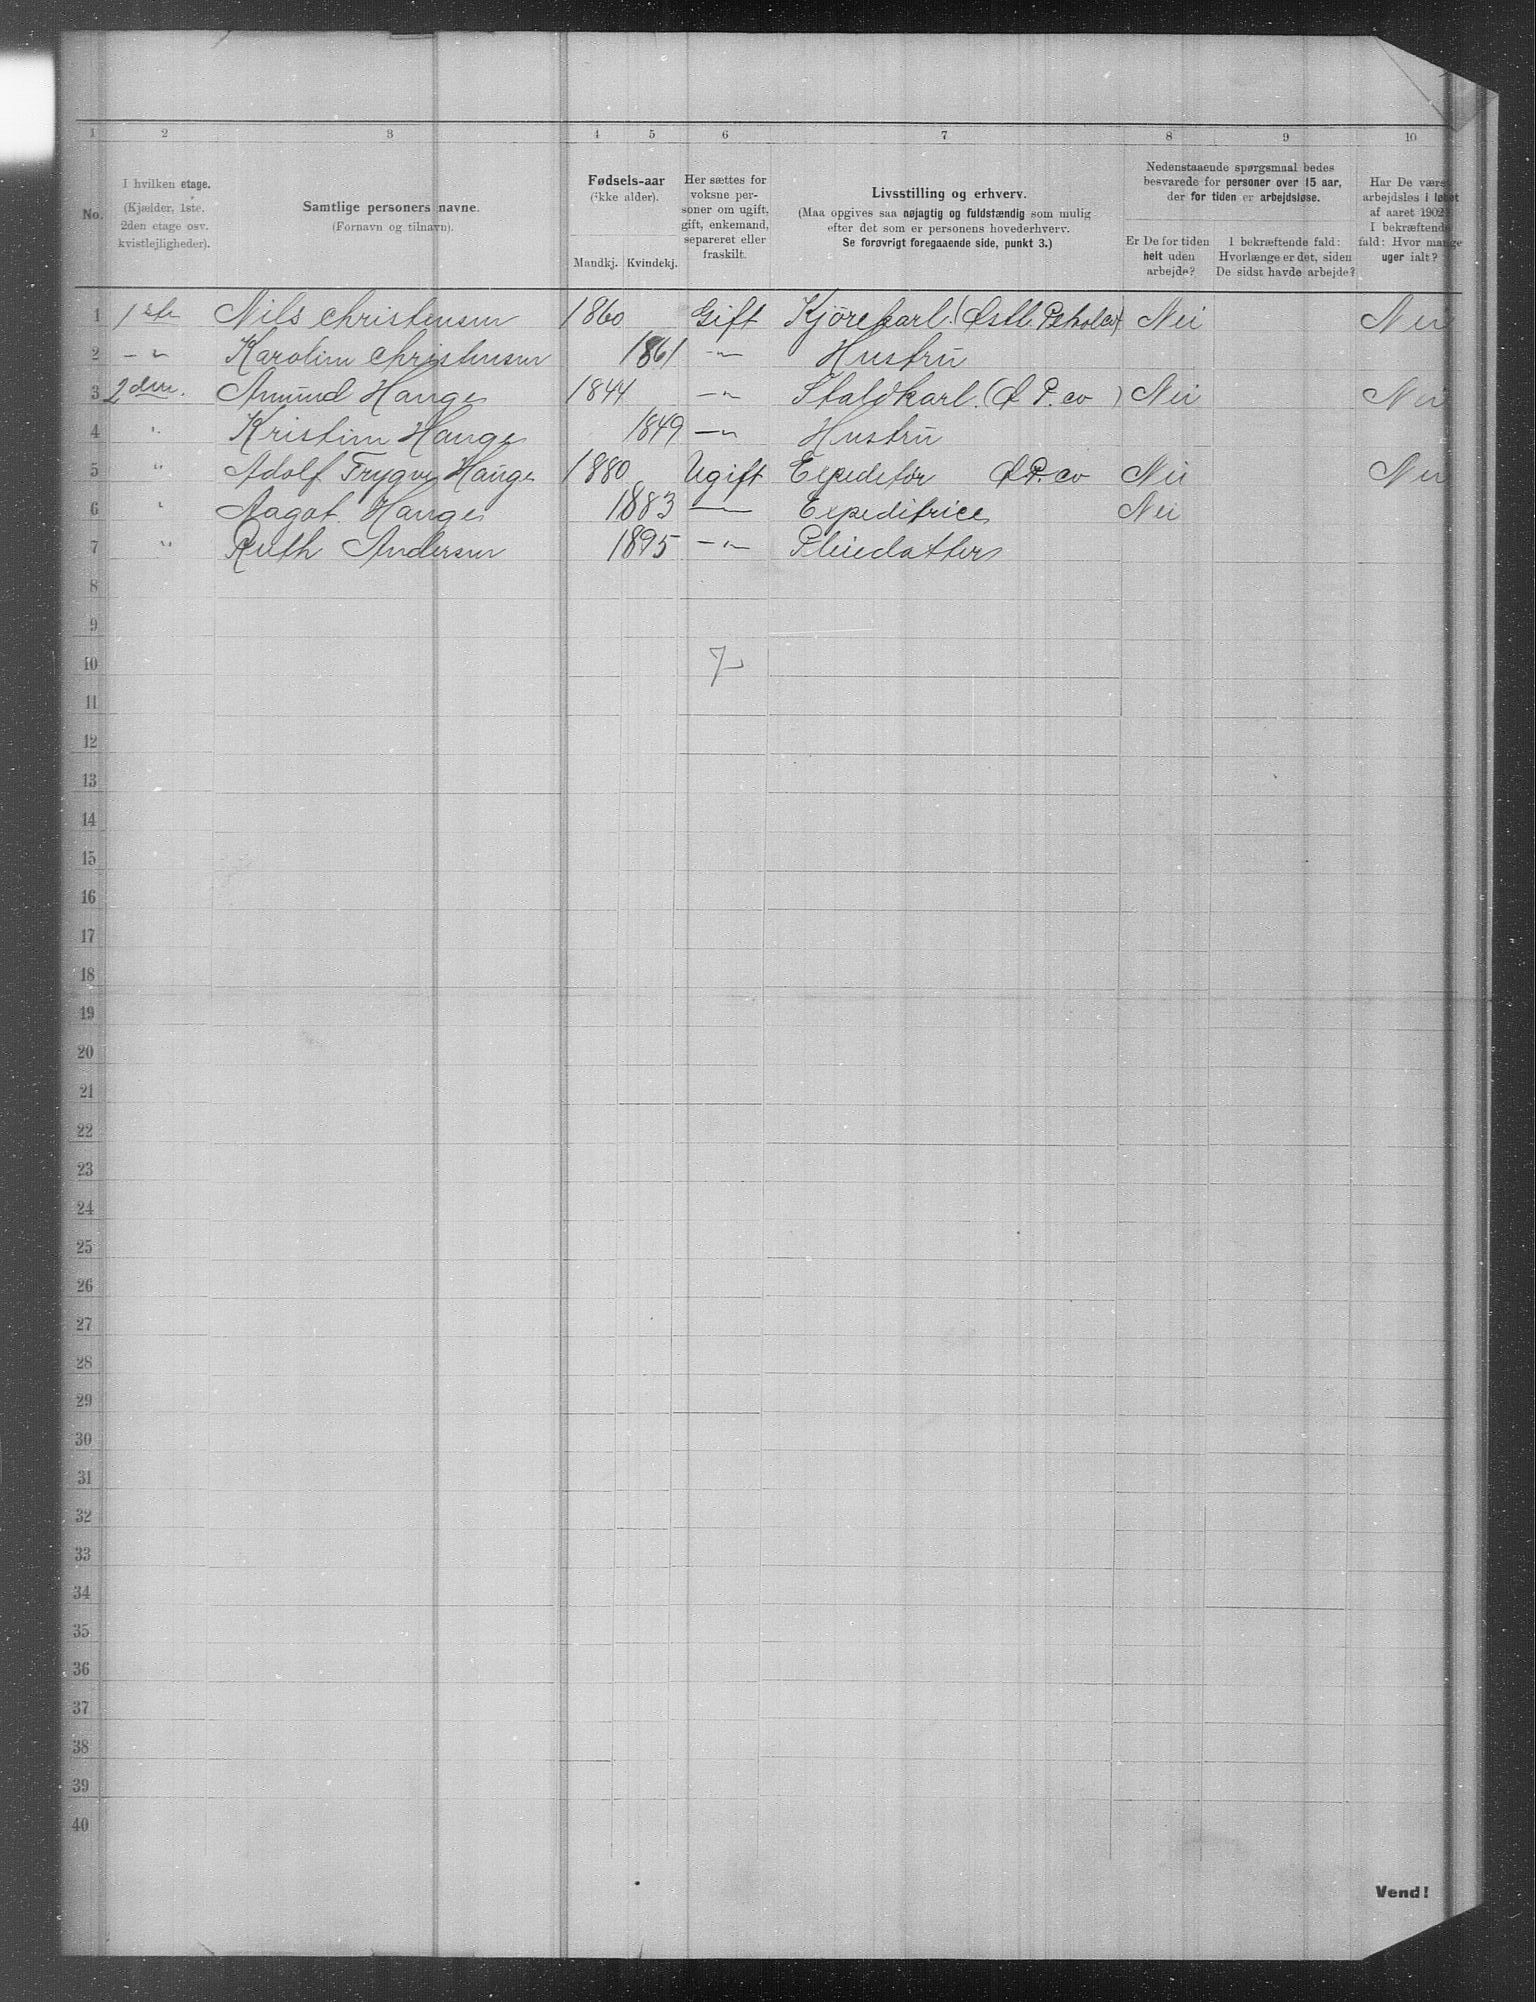 1 2 3 4 5 6 7 8 9 10
No.
I hvilken etage.
(Kjælder, 1ste.
2den etage osv.
kvistlejligheder).
Samtlige personers navne.
(Fornavn og tilnavn).
Fødsels-aar
(ikke alder).
Mandkj. Kvindekj.
Her sættes for
voksne per-
soner om ugift,
gift, enkemand,
separeret eller
fraskilt.
Livsstilling og erhverv.
(Maa opgives saa nøjagtig og fuldstændig som mulig
efter det som er personens hovederhverv.
Se forøvrigt foregaaende side, punkt 3.)
Nedenstaaende spørgsmaal bedes
besvarede for personer over 15 aar,
der for tiden er arbejdsløse.
Er De for tiden
helt uden
arbejde?
I bekræftende fald:
Hvorlænge er det, siden
De sidst havde arbejde?
Har De være
arbejdsløs i løbet
af aaret 1902
I bekræftende
fald: Hvor mange
uger ialt?
1 1ste Nils Christensen 1860 Gift Kjørekarl (Østl. ) Nei Nei
2 -"- Karoline Christensen 1861 -"- Hustru
3 2den. Amund Hauge 1844 -"- Staldkarl. (Ø P. co) Nei Nei
4 " Kristine Hauge 1849 -"- Hustru
5 " Adolf Trygve Hauge 1880 Ugift Expeditør Ø P. co Nei Nei
6 " Aagot Hauge 1883 -"- Expeditrice Nei
7 " Ruth Andersen 1895 -"- Pleiedatter
8
9
10 7
11
12
13
14
15
16
17
18
19
20
21
22
23
24
25
26
27
28
29
30
31
32
33
34
35
36
37
38
39
40
Vend!